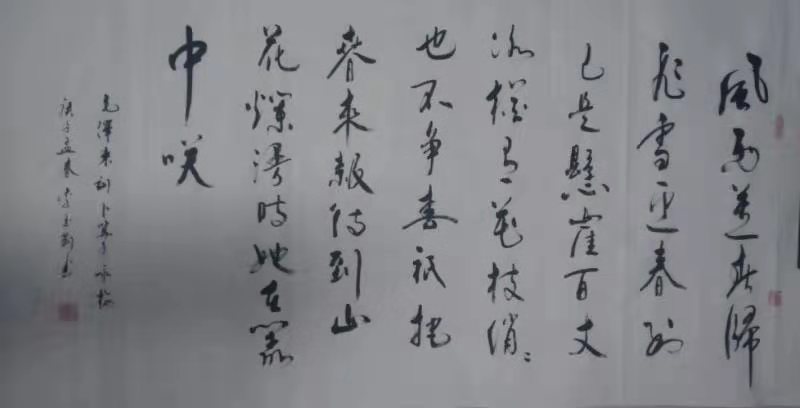 風雨送春歸
飛雪迎春到
已是懸崖百丈
冰猶有花枝俏〻
也不争春祇把
春来報待到山
花爛漫時她在叢
中咲
毛澤東詞卜算子詠梅
庚子孟春